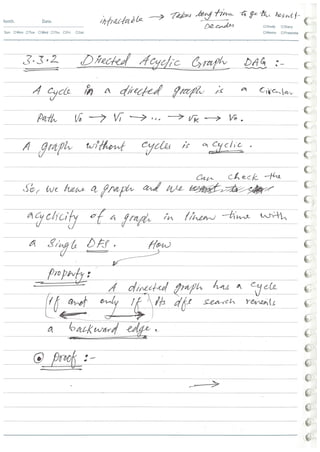 intractable → Takes long time to go the result
Decades
3.3.2 Directed Acyclic Graph DAG :-
A cycle in a directed graph is a circular
Path V0 → V1 → ... → Vk → V0.
A graph without cycles is acyclic.
can check the
So, we have a graph and we
acyclicity of a graph in linear time with
a single DFS. How
Property:
A directed graph has a cycle
if and only if its dfs search reveals
a backward edge.
Proof :-
→